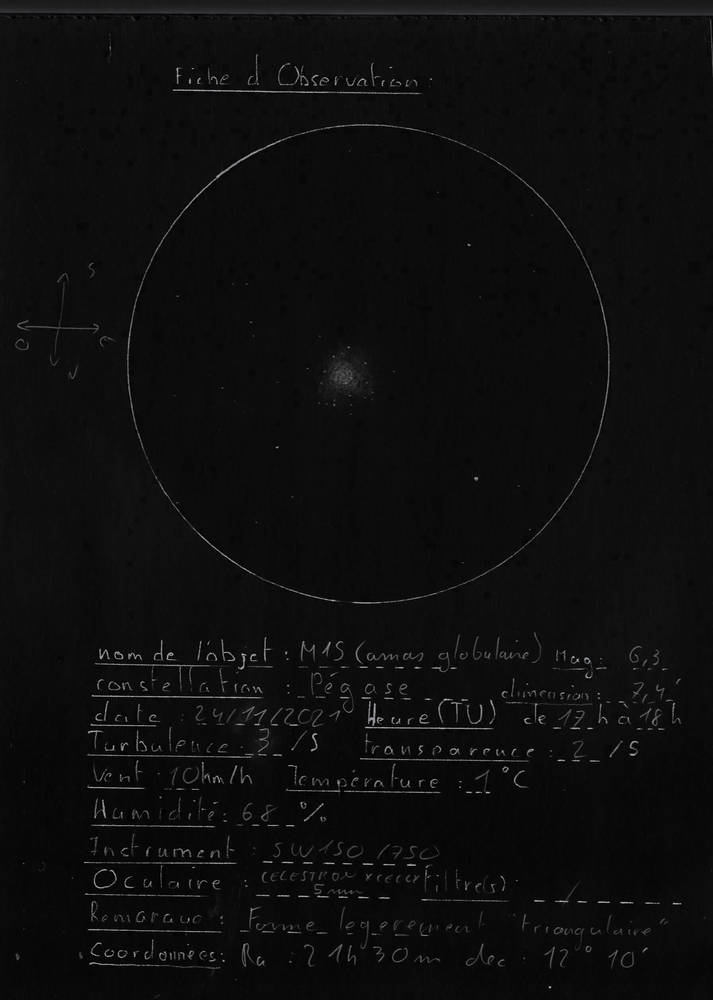 Fiche d Observation:
S
O E
N
nom de l'objet : M15 (amas globulaire) Mag: 6,3
constellation : Pégase dimension: 7,4'
date : 24/11/2021 Heure (TU) de 17 h à 18 h
Turbulence: 3 /5 transparence : 2 /5
Vent : 10km/h Température : 1 °C
Humidité: 68 %
Instrument : SW150/750
Oculaire : CELESTRON XCELLX filtre(s) /
5mm
Remarque : Forme legerement "triangulaire"
Coordonnées: Ra : 21h 30m dec : 12° 10'